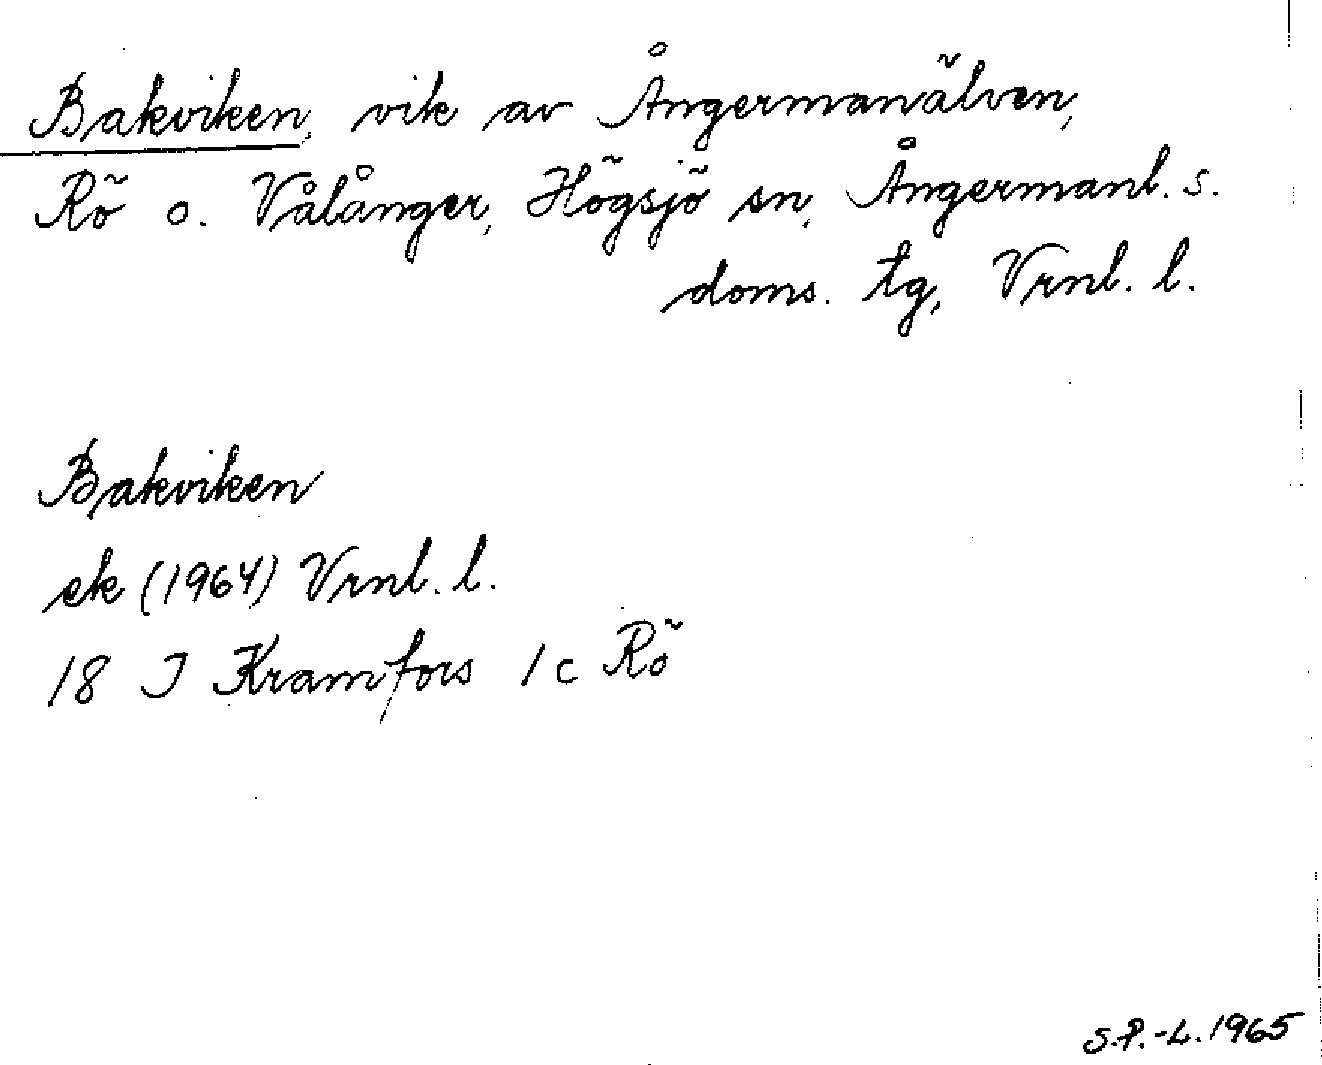 Bakviken, vik av Ångermanälven,
Rö o. Vålånger, Högsjö sn, Ångermanl. s.
doms. tg, Vrnl. l.
Bakviken
ek (1964) Vrnl. l.
18 J Kramfors 1c Rö
S.P.-L. 1965